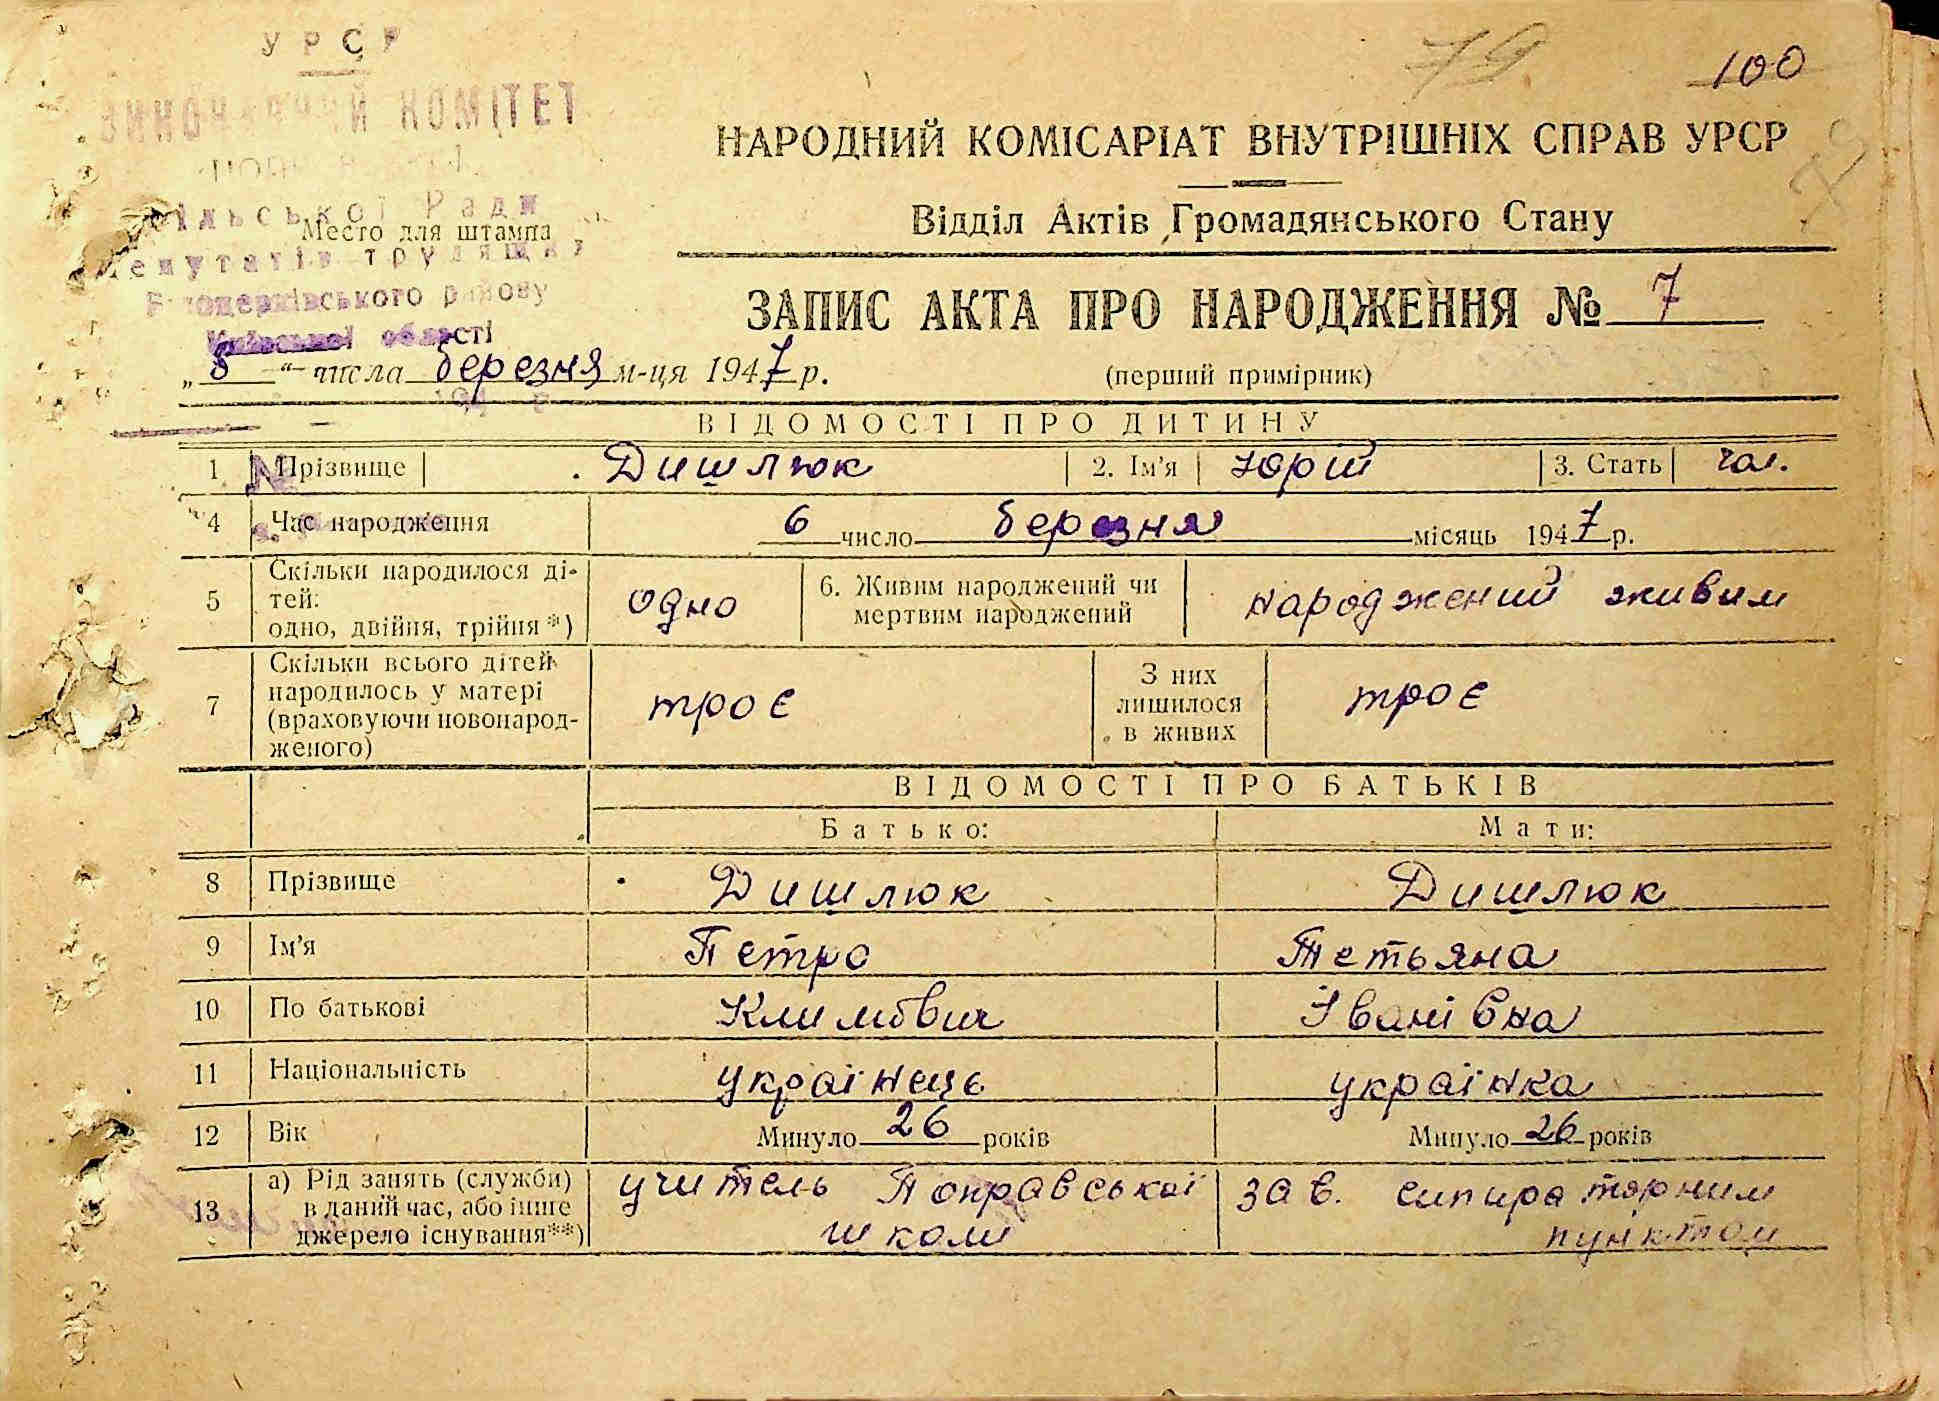 УРСР
79
100
ВИКОНАВЧИЙ КОМІТЕТ
НАРОДНИЙ КОМІСАРІАТ ВНУТРІШНІХ СПРАВ УРСР
79
сільської Ради
Место для штампа
Відділ Актів Громадянського Стану
депутатів трудящих
Білоцерківського району
Київської області
ЗАПИС АКТА ПРО НАРОДЖЕННЯ № 7
„8“ числа березня м-ця 1947 р.
(перший примірник)
ВІДОМОСТІ ПРО ДИТИНУ
1 Прізвище Дишлюк 2. Ім'я Юрій 3. Стать чол.
4 Час народження 6 число березня місяць 1947 р.
5 Скільки народилося ді-
тей:
одно, двійня, трійня *) одно 6. Живим народжений чи
мертвим народжений народжений живим
7 Скільки всього дітей
народилось у матері
(враховуючи новонарод-
женого) троє З них
лишилося
в живих троє
ВІДОМОСТІ ПРО БАТЬКІВ
Батько: Мати:
8 Прізвище Дишлюк Дишлюк
9 Ім'я Петро Тетьяна
10 По батькові Климович Іванівна
11 Національність українець українка
12 Вік Минуло 26 років Минуло 26 років
13 а) Рід занять (служби)
в даний час, або інше
джерело існування**) учитель Поправської
школи зав. сипираторним
пунктом